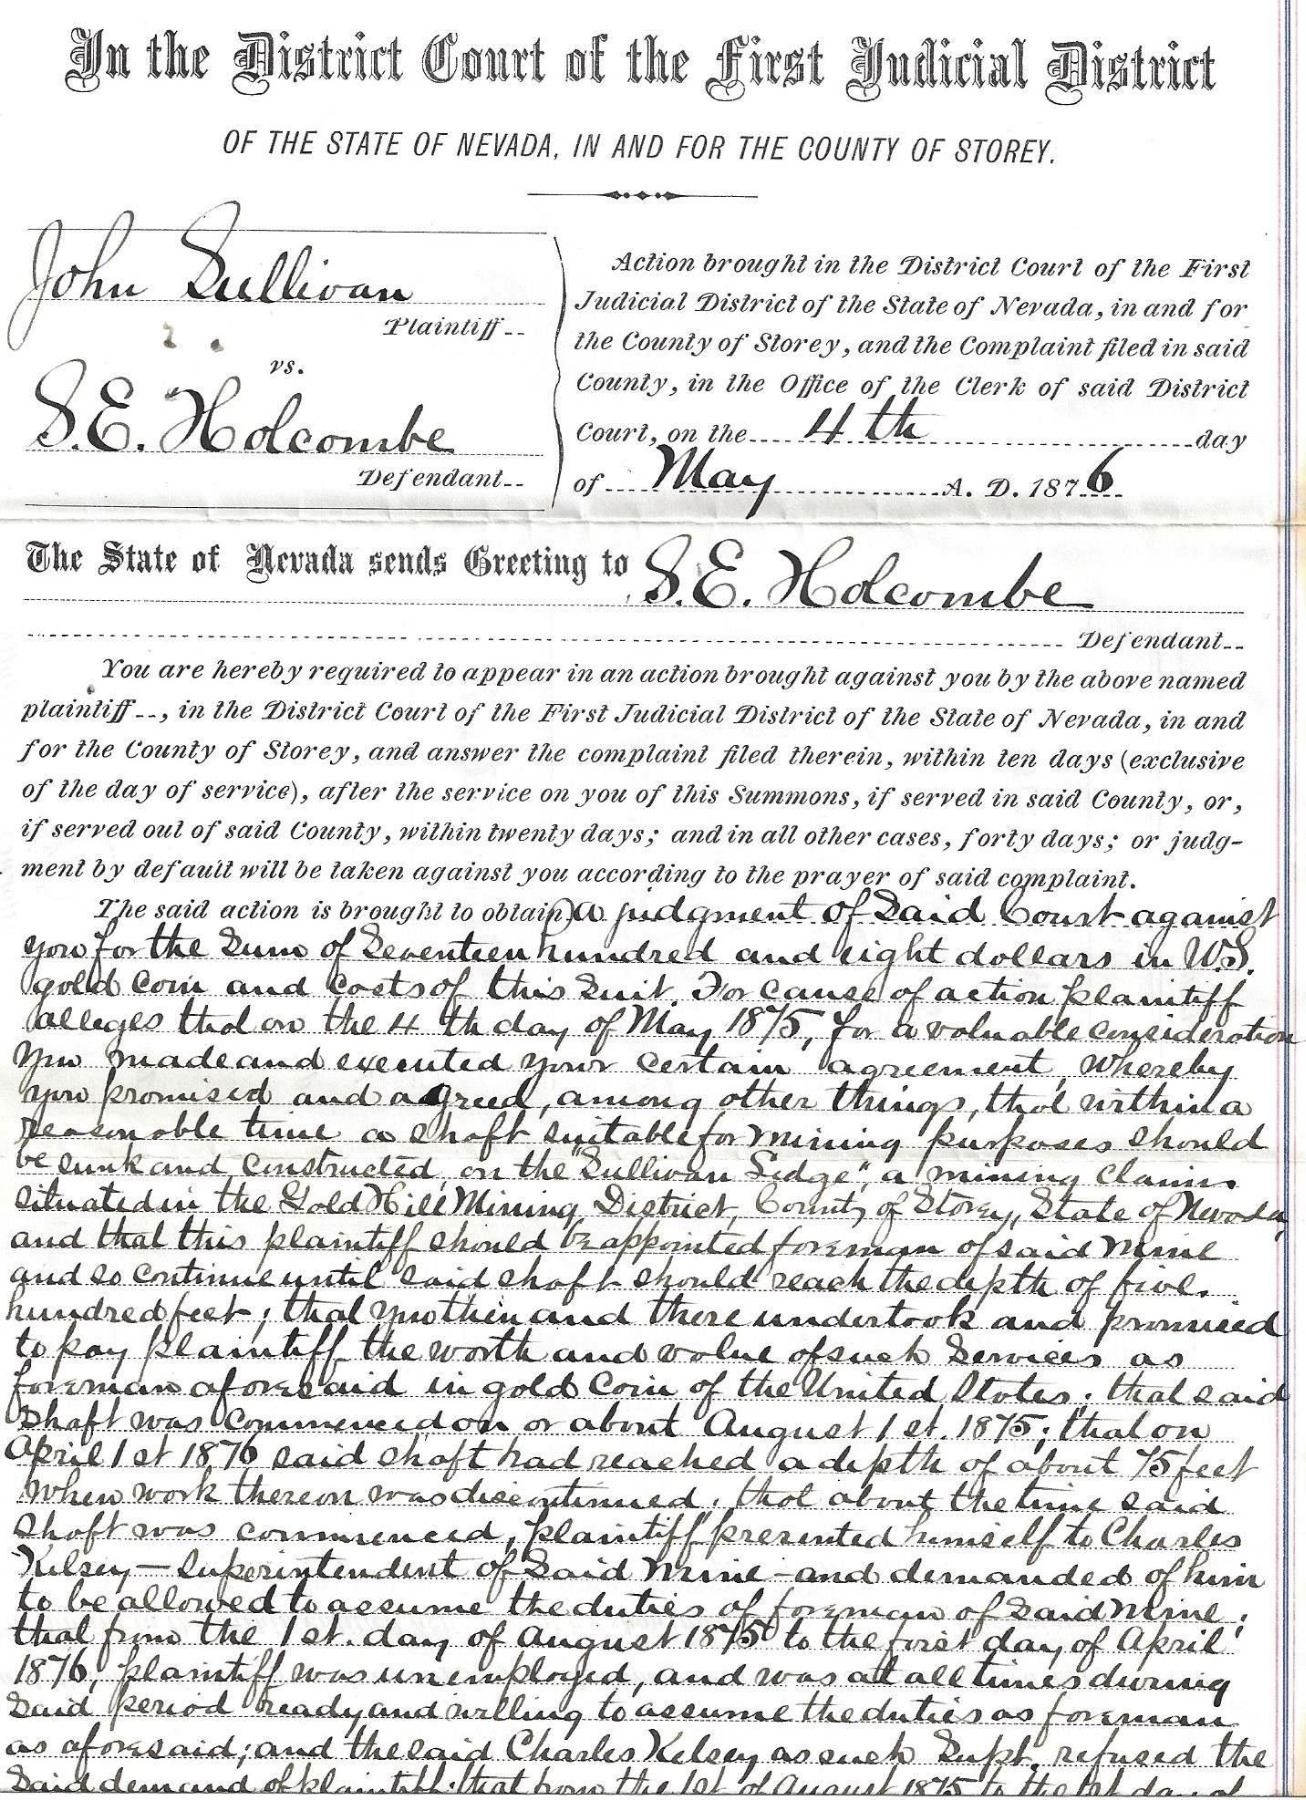 In the District Court of the First Judicial District
OF THE STATE OF NEVADA, IN AND FOR THE COUNTY OF STOREY.
John Sullivan
Plaintiff
vs.
S.E. Holcombe
Defendant
Action brought in the District Court of the First
Judicial District of the State of Nevada, in and for
the County of Storey, and the Complaint filed in said
County, in the Office of the Clerk of said District
Court, on the 4th day
of May A. D. 1876
The State of Nevada sends Greeting to S.E. Holcombe
Defendant
You are hereby required to appear in an action brought against you by the above named
plaintiff, in the District Court of the First Judicial District of the State of Nevada, in and
for the County of Storey, and answer the complaint filed therein, within ten days (exclusive
of the day of service), after the service on you of this Summons, if served in said County, or,
if served out of said County, within twenty days; and in all other cases, forty days; or judg-
ment by default will be taken against you according to the prayer of said complaint.
The said action is brought to obtain a judgment of Said Court against
you for the Sum of Seventeen hundred and eight dollars in U.S.
gold coin and costs of this Suit. For cause of action plaintiff
alleges that on the 4th day of May 1875, for a valuable consideration
you made and executed your certain agreement, whereby
you promised and agreed, among other things, that within a
reasonable time a shaft suitable for mining purposes should
be sunk and constructed, on the "Sullivan Ledge", a mining claim
situated in the Gold Hill Mining District, County of Storey, State of Nevada,
and that this plaintiff should be appointed foreman of said Mine
and so continue until said shaft should reach the depth of five
hundred feet; that you then and there undertook and promised
to pay plaintiff the worth and value of such Services as
foreman aforesaid in gold Coin of the United States; that said
Shaft was Commenced on or about August 1st. 1875; that on
April 1st 1876 said shaft had reached a depth of about 75 feet
when work thereon was discontinued. that about the time said
shaft was commenced, plaintiff presented himself to Charles
Kelsey — Superintendent of Said Mine — and demanded of him
to be allowed to assume the duties of foreman of Said Mine;
that from the 1st. day of August 1875 to the first day of April
1876, plaintiff was unemployed, and was at all times during
Said period ready and willing to assume the duties as foreman
as aforesaid; and the said Charles Kelsey as such Supt. refused the
Said demand of plaintiff; that from the 1st of August 1875 to the 1st day of